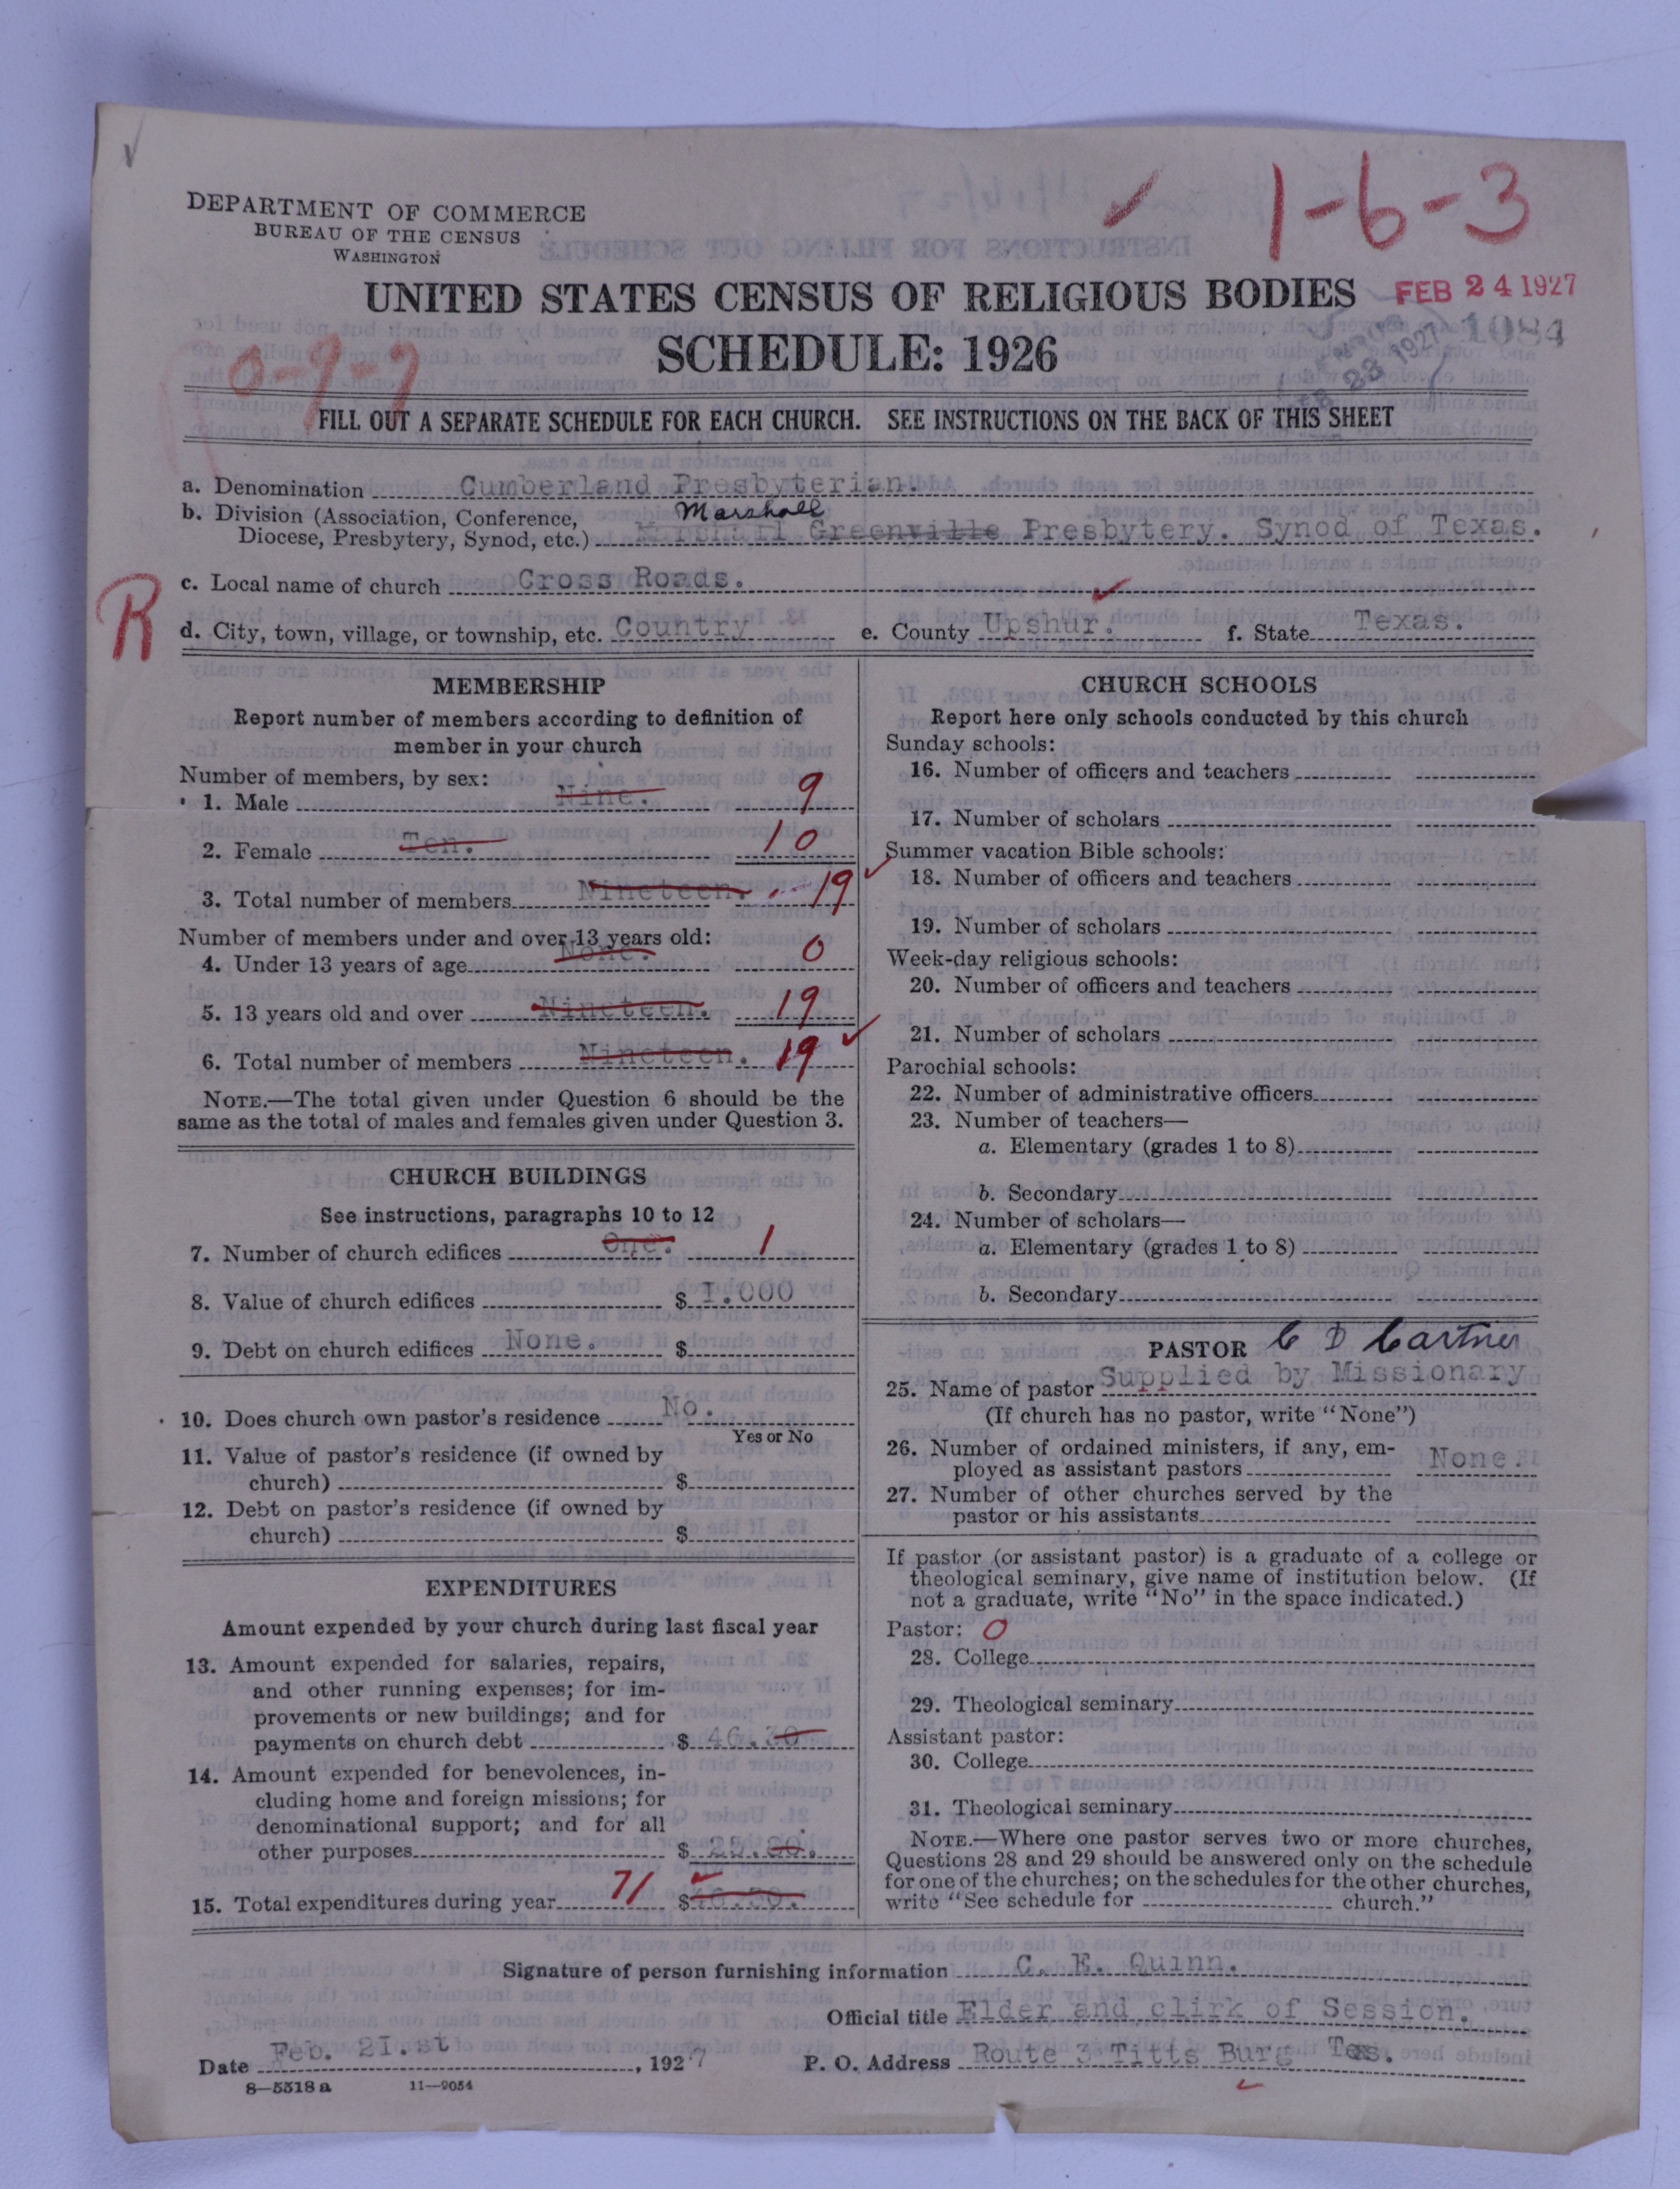 1-6-3
DEPARTMENT OF COMMERCE
BUREAU OF THE CENSUS
WASHINGTON
UNITED STATES CENSUS OF RELIGIOUS BODIES
FEB 24 1927
SCHEDULE: 1926
1084
0-9-9
FILL OUT A SEPARATE SCHEDULE FOR EACH CHURCH. SEE INSTRUCTIONS ON THE BACK OF THIS SHEET
a. Denomination Cumberland Presbyterian.
Marshall
b. Division (Association, Conference,
Diocese, Presbytery, Synod, etc.) Marshall Greenville Presbytery. Synod of Texas.
R
c. Local name of church Cross Roads.
d. City, town, village, or township, etc. Country e. County Upshur. f. State Texas.
MEMBERSHIP
Report number of members according to definition of
member in your church
Number of members, by sex:
1. Male Nine. 9
2. Female Ten. 10
3. Total number of members Nineteen. 19
Number of members under and over 13 years old:
4. Under 13 years of age None. 0
5. 13 years old and over Nineteen. 19
6. Total number of members Nineteen. 19
NOTE.—The total given under Question 6 should be the
same as the total of males and females given under Question 3.
CHURCH BUILDINGS
See instructions, paragraphs 10 to 12
7. Number of church edifices One. 1
8. Value of church edifices $ 1.000
9. Debt on church edifices None. $
10. Does church own pastor's residence No.
Yes or No
11. Value of pastor's residence (if owned by
church) $
12. Debt on pastor's residence (if owned by
church) $
EXPENDITURES
Amount expended by your church during last fiscal year
13. Amount expended for salaries, repairs,
and other running expenses; for im-
provements or new buildings; and for
payments on church debt $ 46.30
14. Amount expended for benevolences, in-
cluding home and foreign missions; for
denominational support; and for all
other purposes $
15. Total expenditures during year 71 $
CHURCH SCHOOLS
Report here only schools conducted by this church
Sunday schools:
16. Number of officers and teachers
17. Number of scholars
Summer vacation Bible schools:
18. Number of officers and teachers
19. Number of scholars
Week-day religious schools:
20. Number of officers and teachers
21. Number of scholars
Parochial schools:
22. Number of administrative officers
23. Number of teachers—
a. Elementary (grades 1 to 8)
b. Secondary
24. Number of scholars—
a. Elementary (grades 1 to 8)
b. Secondary
PASTOR C D Cartner
25. Name of pastor Supplied by Missionary
(If church has no pastor, write "None")
26. Number of ordained ministers, if any, em-
ployed as assistant pastors None.
27. Number of other churches served by the
pastor or his assistants
If pastor (or assistant pastor) is a graduate of a college or
theological seminary, give name of institution below. (If
not a graduate, write "No" in the space indicated.)
Pastor: 0
28. College
29. Theological seminary
Assistant pastor:
30. College
31. Theological seminary
NOTE.—Where one pastor serves two or more churches,
Questions 28 and 29 should be answered only on the schedule
for one of the churches; on the schedules for the other churches,
write "See schedule for church."
Signature of person furnishing information C. E. Quinn.
Official title Elder and clirk of Session.
Date Feb. 21.st, 1927 P. O. Address Route 3 Titts Burg Tes.
8—5518 a 11—9054